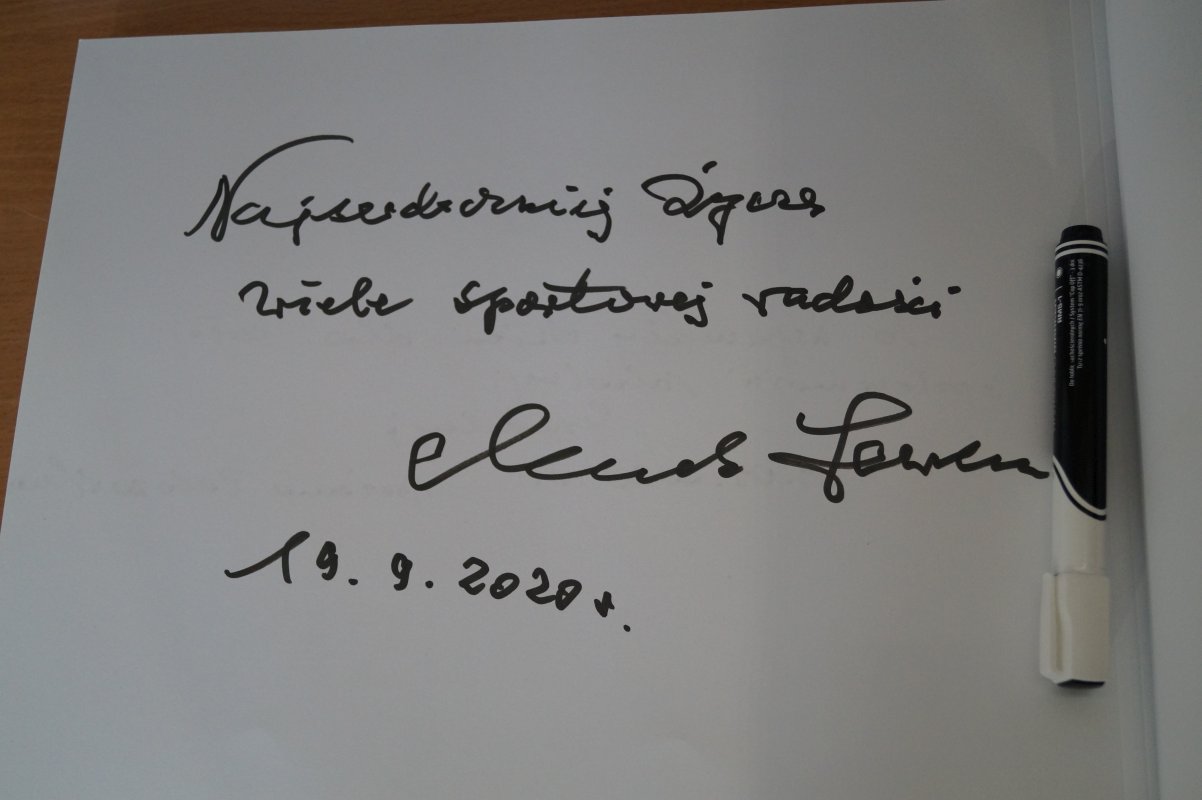 Najserdeczniej życzę
wiele sportowej radości
19. 9. 2020 r.